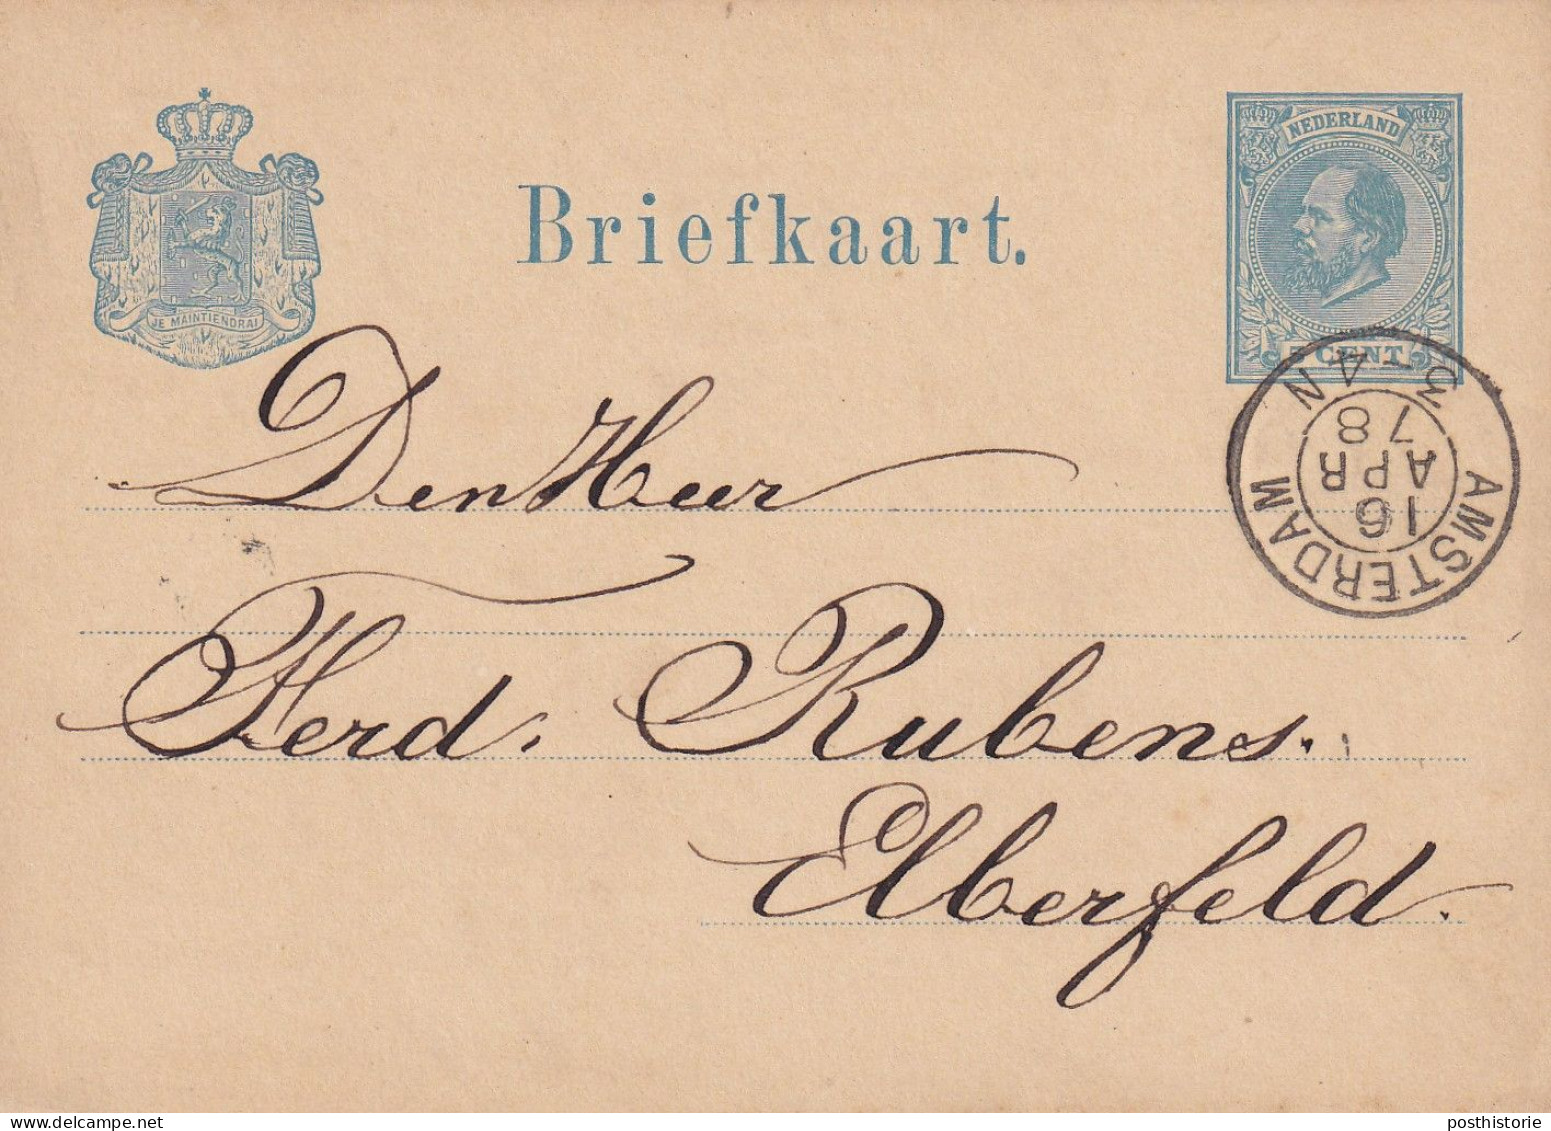 NEDERLAND
Briefkaart.
JE MAINTIENDRAI
5 CENT
AMSTERDAM
16
APR
78
3-4 N
Den Heer
Herd. Rubens.
Elberfeld.
posthistorie